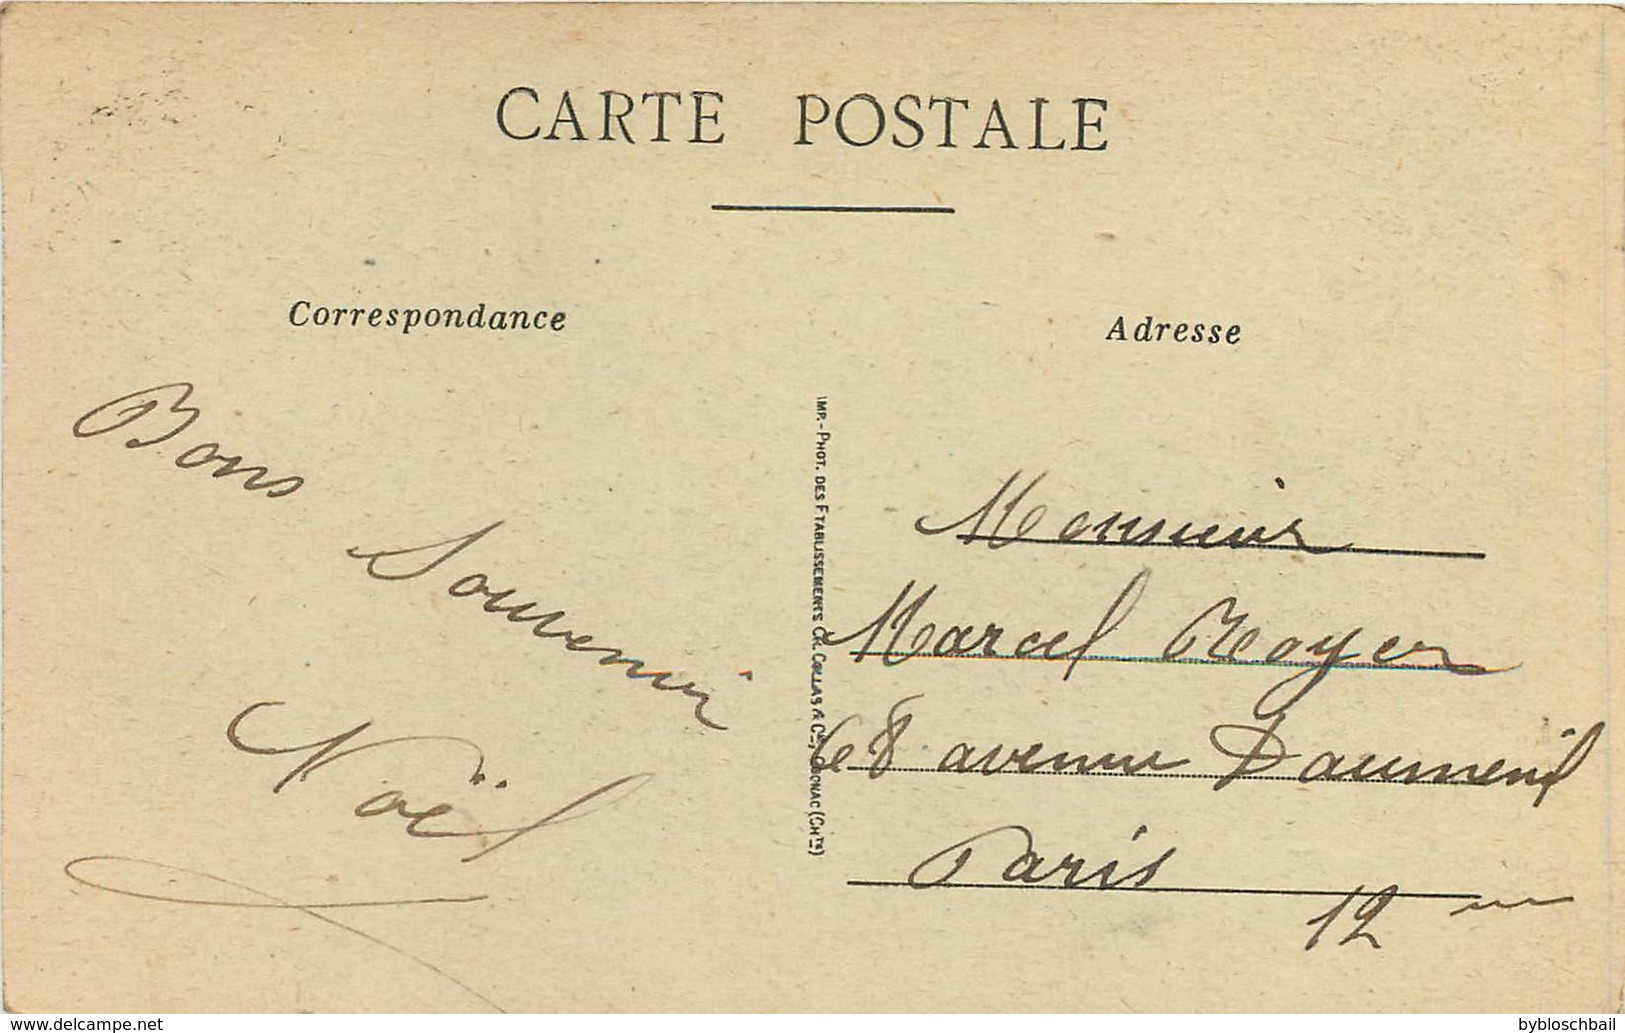 CARTE POSTALE
Correspondance
Adresse
Bons
Souvenir
Noël
IMP.-PHOT. DES ETABLISSEMENTS CH. COLLAS & Cie, COGNAC (CHTE)
Monsieur
Marcel Royer
68 avenue Daumenil
Paris
12 me
www.delcampe.net
bybloschbail